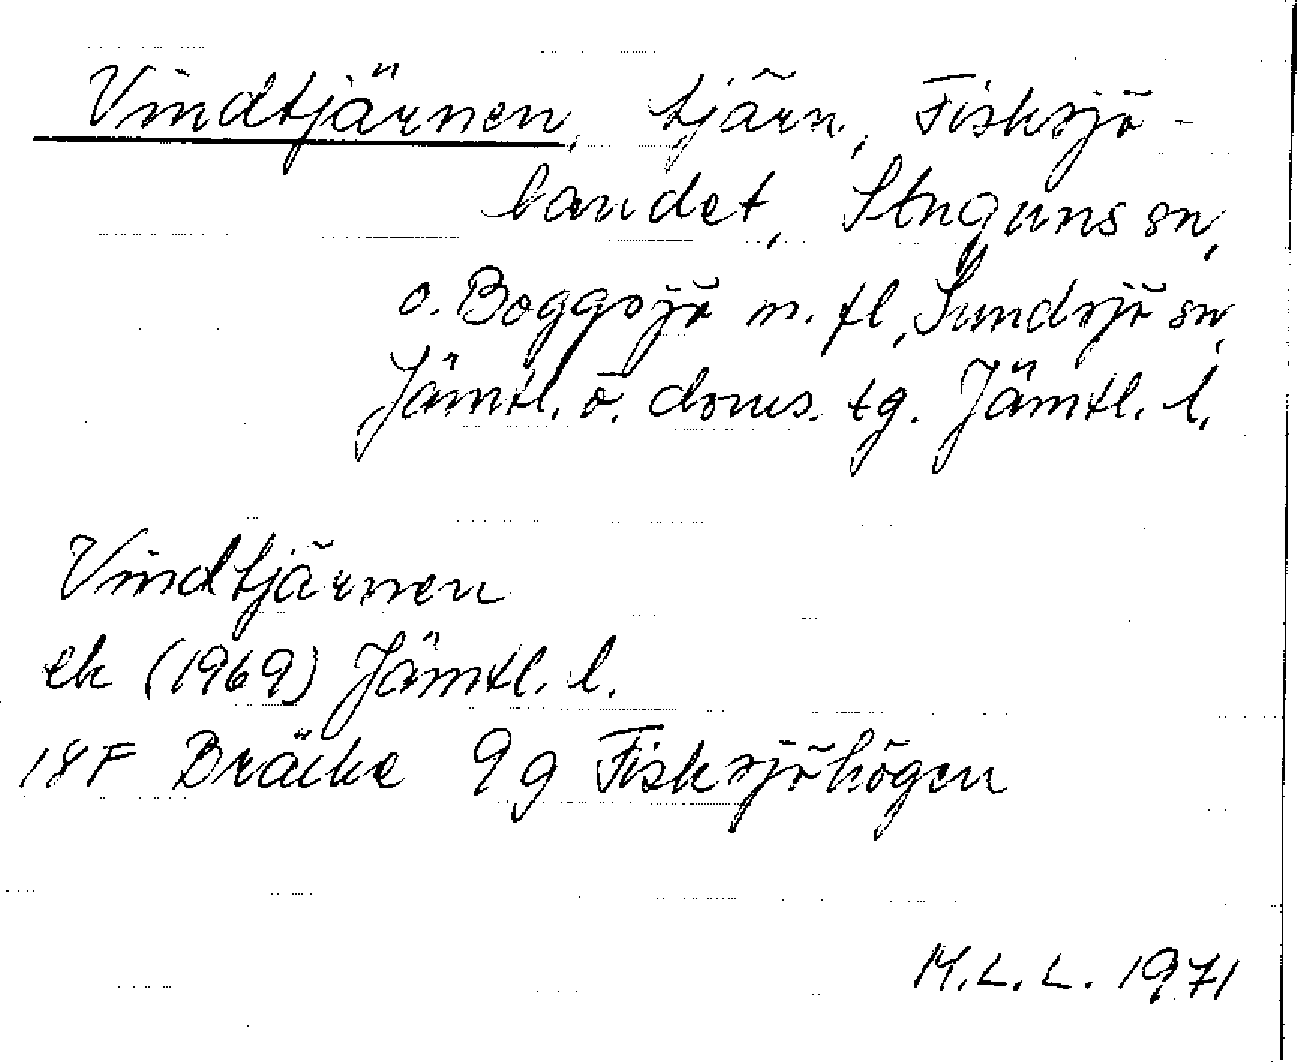 Vindtjärnen, tjärn, Fisksjö-
landet, Stuguns sn,
o. Boggsjö m. fl, Sundsjö sn,
Jämtl. ö. doms. tg. Jämtl. l.
Vindtjärnen
ek (1969) Jämtl. l.
18F Bräcke 9g Fisksjöhögen
M.L.L. 1971